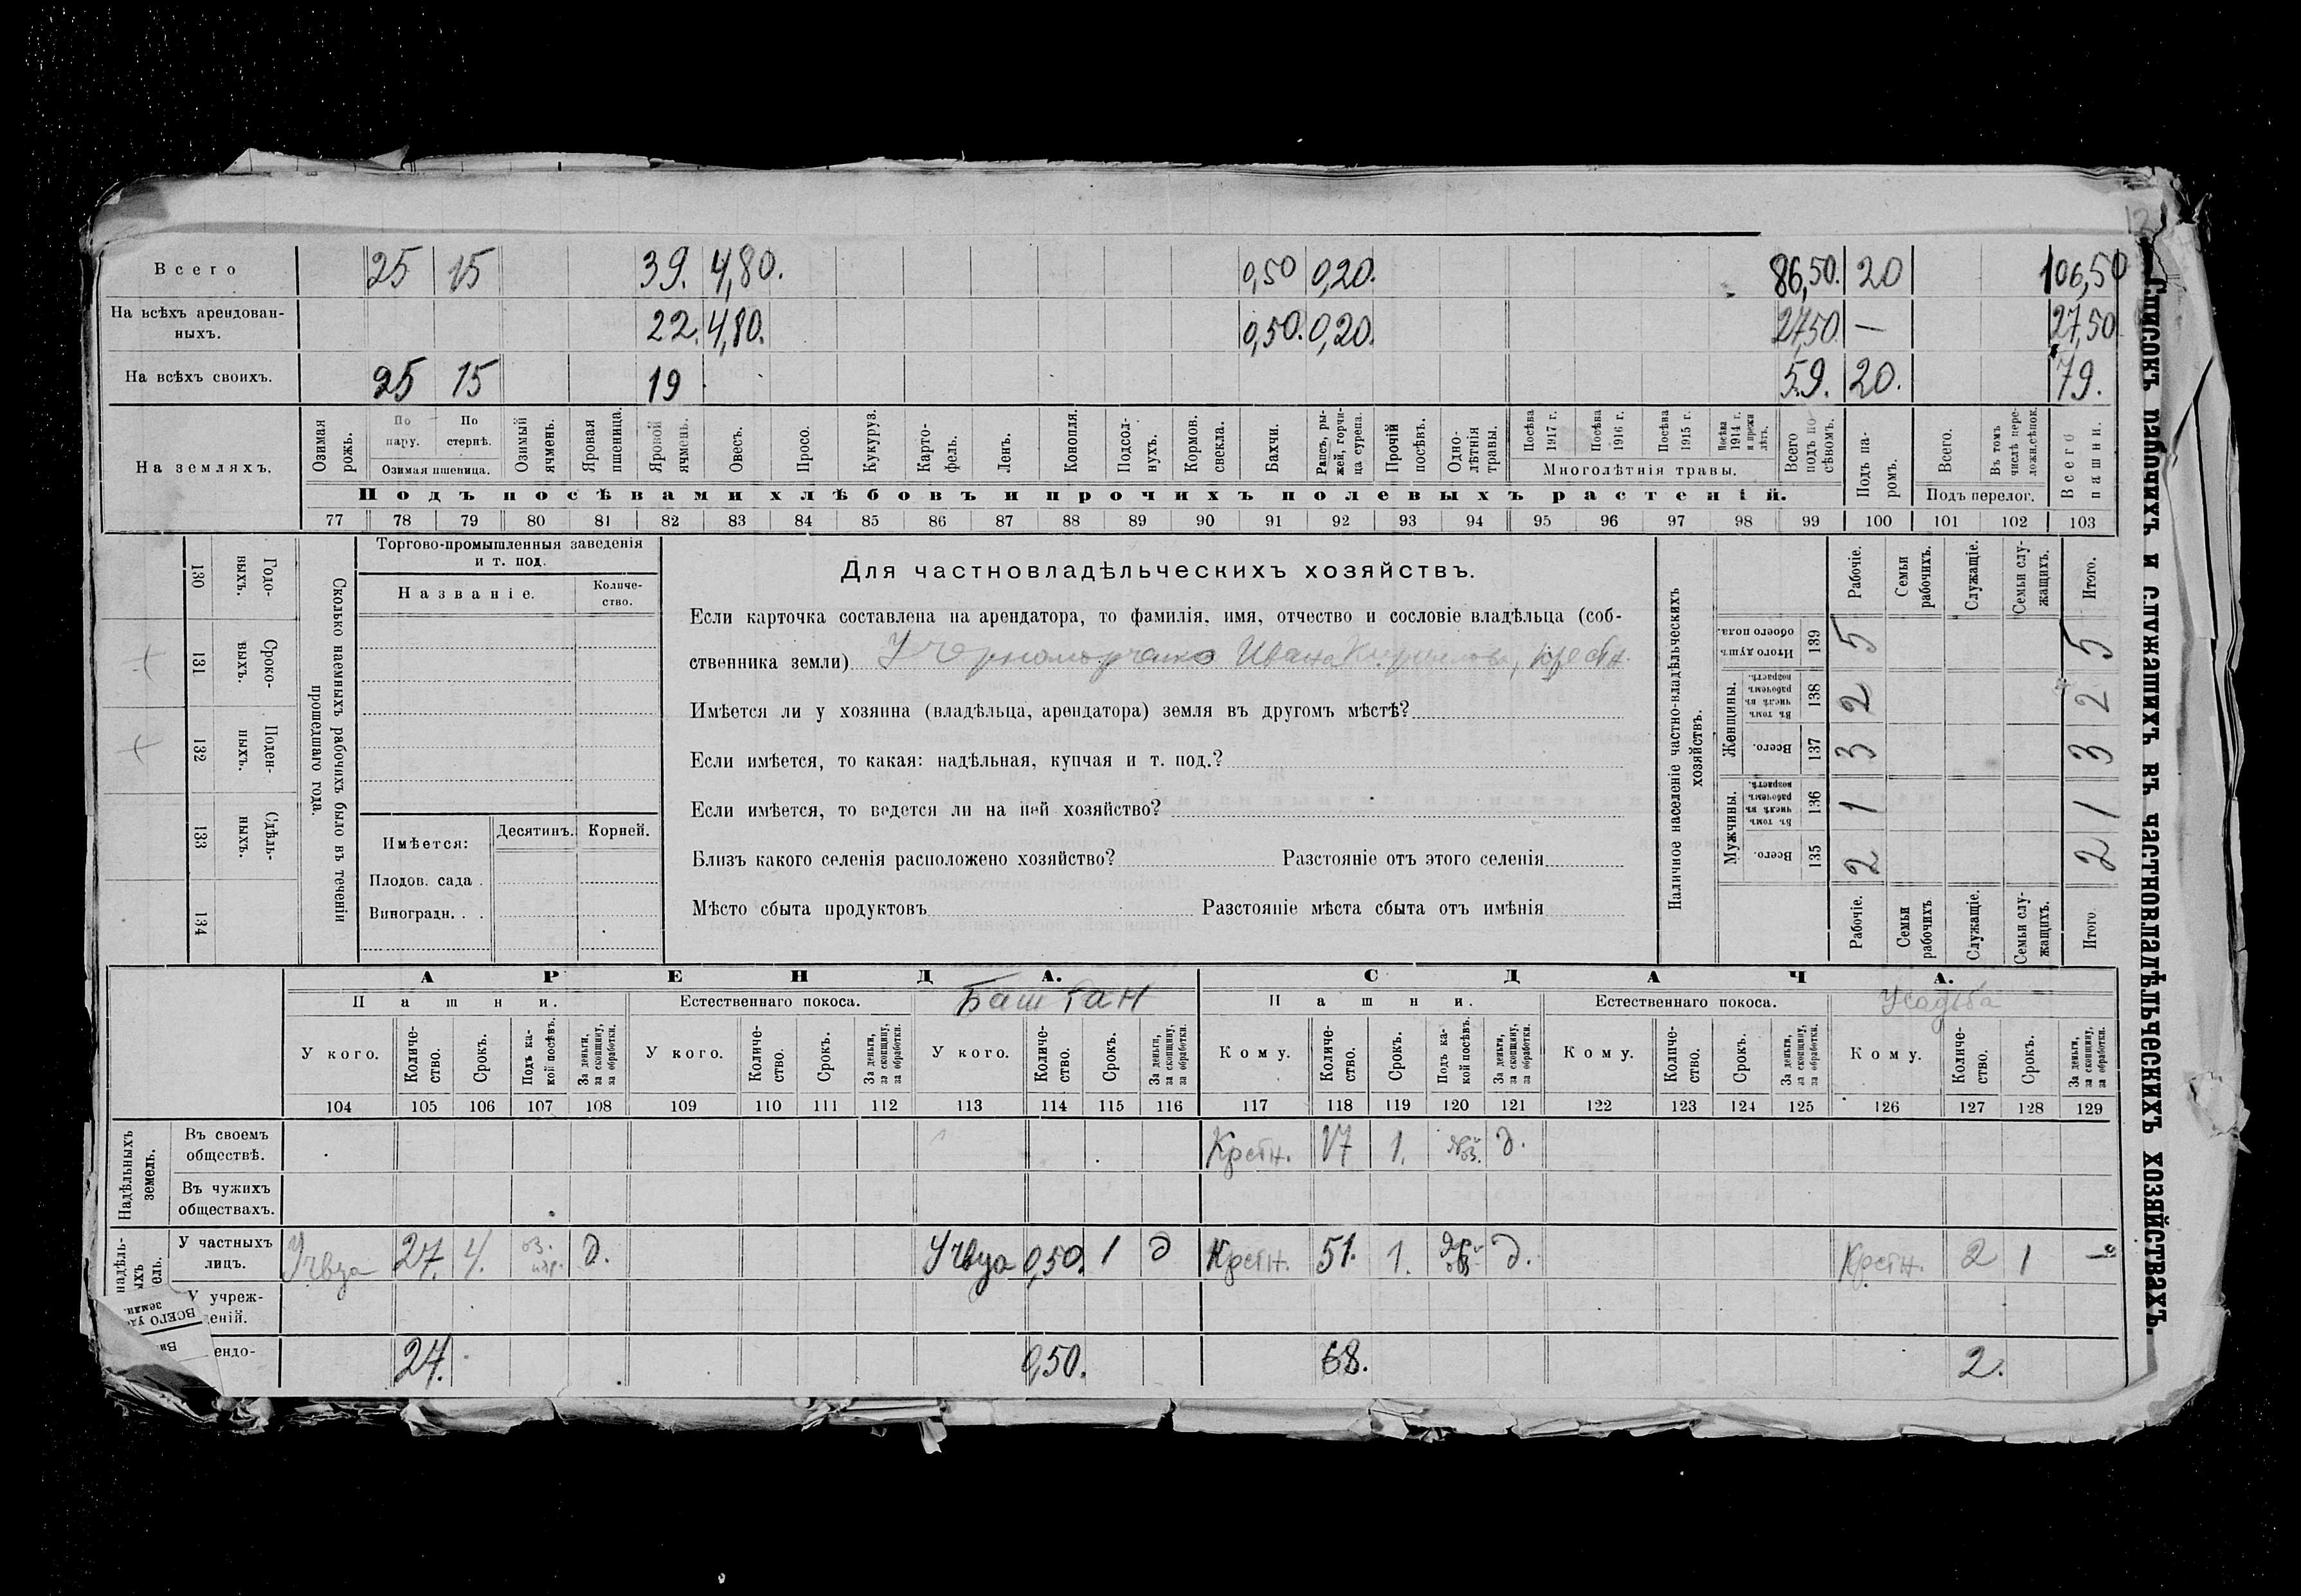 Всего 25 15 39. 4,80. 0,50 0,20. 86,50. 20 106,50
На всѣхъ арендован-
ныхъ. 22. 4,80. 0,50. 0,20. 27,50. — 27,50
На всѣхъ своихъ. 25 15 19 59. 20. 79.
На земляхъ.
Озимая рожь.
По пару.
По стернѣ.
Озимая пшеница.
Озимый ячмень.
Яровая пшеница.
Яровой ячмень.
Овесъ.
Просо.
Кукуруз.
Карто-
фель.
Ленъ.
Конопля.
Подсол-
нухъ.
Кормов.
свекла.
Бахчи.
Рапсъ, ры-
жей, горчи-
ца сурепа.
Прочій
посѣвъ.
Одно-
лѣтнія
травы.
Посѣва 1917 г.
Посѣва 1916 г.
Посѣва 1915 г.
Посѣва 1914 г. и прежн лѣтъ.
Многолѣтнія травы.
Всего подъ по-
сѣвомъ.
Подъ па-
ромъ.
Всего.
Въ томъ числѣ пере-
ложн.сѣнок.
Подъ перелог.
Всего пашни.
Подъ посѣвами хлѣбовъ и прочихъ полевыхъ растеній.
77 78 79 80 81 82 83 84 85 86 87 88 89 90 91 92 93 94 95 96 97 98 99 100 101 102 103
Годо-
выхъ. 130
Сроко-
выхъ. 131
Поден-
ныхъ. 132
Сдѣль-
ныхъ. 133
134
Сколько наемныхъ рабочихъ было въ теченіи
прошедшаго года.
Торгово-промышленныя заведенія
и т. под.
Названіе.
Количе-
ство.
Имѣется: Десятинъ. Корней.
Плодов. сада .
Виноградн. . .
Для частновладѣльческихъ хозяйствъ.
Если карточка составлена на арендатора, то фамилія, имя, отчество и сословіе владѣльца (соб-
ственника земли) Ивана крестн.
Имѣется ли у хозяина (владѣльца, арендатора) земля въ другомъ мѣстѣ?
Если имѣется, то какая: надѣльная, купчая и т. под.?
Если имѣется, то ведется ли на ней хозяйство?
Близъ какого селенія расположено хозяйство? Разстояніе отъ этого селенія
Мѣсто сбыта продуктовъ Разстояніе мѣста сбыта отъ имѣнія
Наличное населеніе частно-владѣльческихъ
хозяйствъ.
Рабочіе.
Семьи рабочихъ.
Служащіе.
Семьи слу-
жащихъ.
Итого.
Итого душъ обоего пола. 139 5 5
Женщины.
Въ томъ числѣ въ рабочемъ возрастѣ. 138 2 2
Всего. 137 3 3
Мужчины.
Въ томъ числѣ въ рабочемъ возрастѣ. 136 1 1
Всего. 135 2 2
Рабочіе.
Семьи рабочихъ
Служащіе.
Семьи слу-
жащихъ.
Итого
Списокъ рабочихъ и служащихъ въ частновладѣльческихъ хозяйствахъ.
АРЕНДА. СДАЧА.
Пашни. Естественнаго покоса. Баштан Пашни. Естественнаго покоса. Усадьба
У кого. Количе-
ство. Срокъ. Подъ ка-
кой посѣвъ. За деньги,
за скопщину,
за обработки.
У кого. Количе-
ство. Срокъ. За деньги,
за скопщину,
за обработки.
У кого. Количе-
ство. Срокъ. За деньги,
за скопщину,
за обработки.
Кому. Количе-
ство. Срокъ. Подъ ка-
кой посѣвъ. За деньги,
за скопщину,
за обработки.
Кому. Количе-
ство. Срокъ. За деньги,
за скопщину,
за обработки.
Кому. Количе-
ство. Срокъ. За деньги,
за скопщину,
за обработки.
104 105 106 107 108 109 110 111 112 113 114 115 116 117 118 119 120 121 122 123 124 125 126 127 128 129
Надѣльныхъ
земель.
Въ своемъ
обществѣ. Крестн. 17 1. д.
Въ чужихъ
обществахъ.
надѣль-
ыхъ
ель.
У частныхъ
лицъ. 27. 4. д. 0,50. 1 д Крестн. 51. 1. д. Крестн. 2 1
У учреж-
еній.
ендо- 27. 0,50. 68. 2.
ВСЕГО
земли.